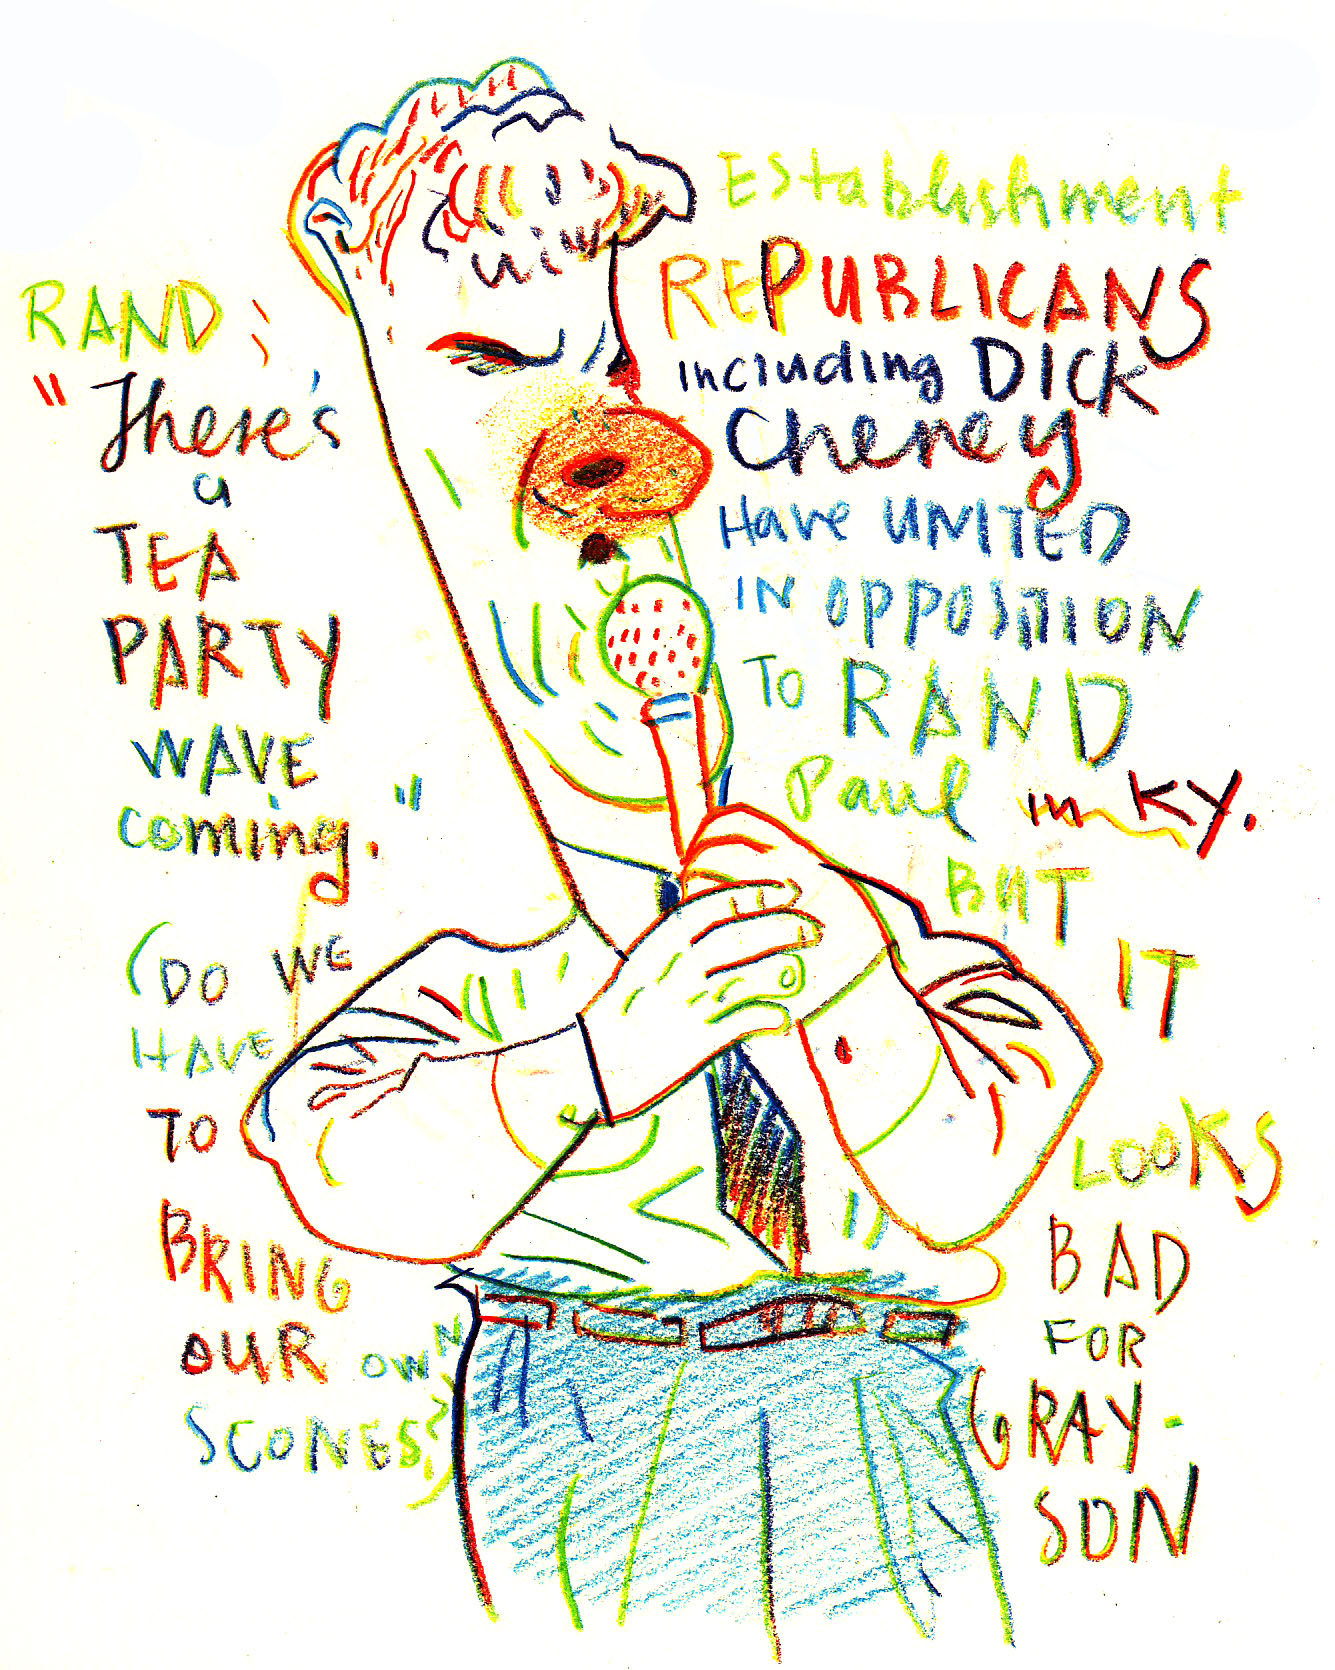 RAND:
"There's
a
TEA
PARTY
WAVE
coming."
(DO WE
HAVE
TO
BRING
OUR OWN
SCONES?)
Establishment
REPUBLICANS
including DICK
Cheney
Have UNITED
IN OPPOSITION
TO RAND
Paul in KY.
BUT
IT
LOOKS
BAD
FOR
GRAY-
SON